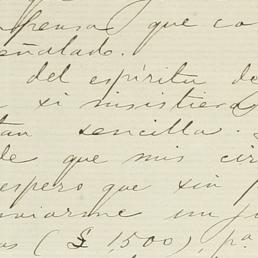 que co
señalado.
del espíritu de
si insistiera
tan sencilla.
de que mis cir
espero que sin
enviarme un
(£ 1,500), pª